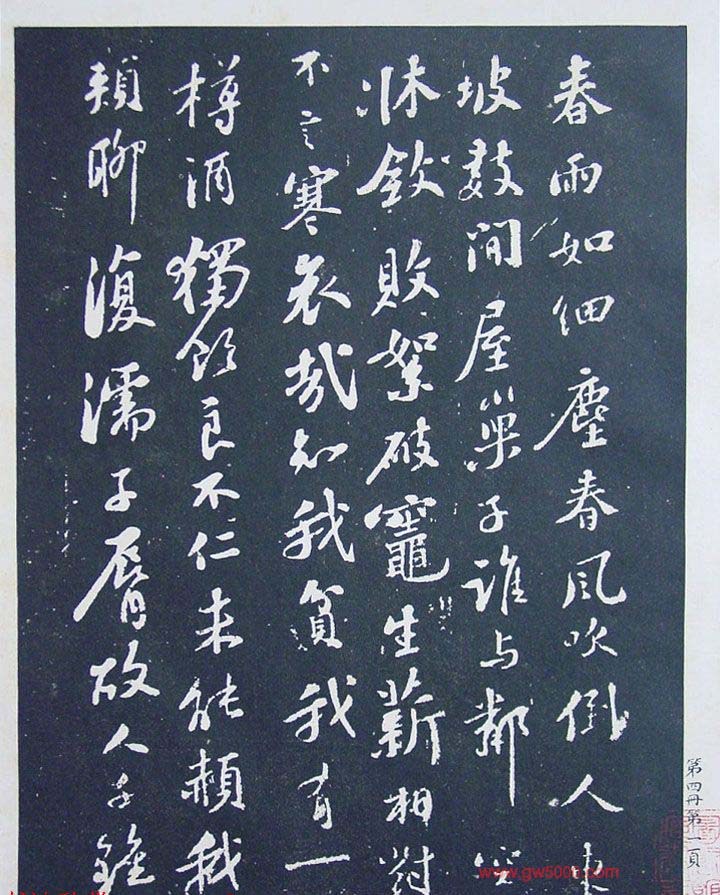 春雨如細塵春風吹倒人東
坡數間屋巢子誰与鄰空
牀斂敗絮破竈生薪相對
不言寒哀哉知我貧我有一
樽酒獨飲良不仁未能赬我
頰聊復濡子脣故人千鍾
第四冊第一頁